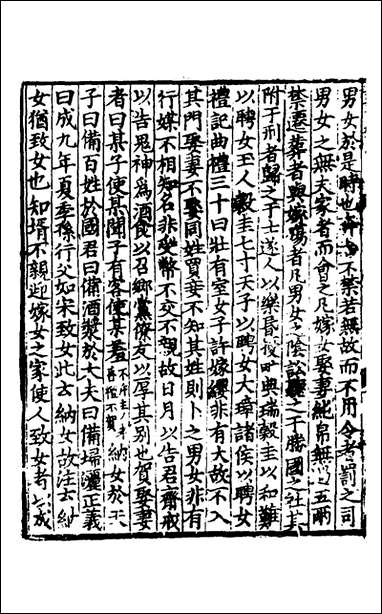 男女於是時也奔者不禁若無故而不用令者罰之司
男女之無夫家者而會之凡嫁女娶妻純帛無過五兩
禁遷葬者與嫁殤者凡男女之陰訟聽之于勝國之社其
附于刑者歸之于士遂人以樂昏擾甿典瑞穀圭以和難
以聘女玉人穀圭七寸天子以聘女大璋諸侯以聘女
禮記曲禮三十曰壯有室女子許嫁纓非有大故不入
其門娶妻不娶同姓買妾不知其姓則卜之男女非有
行媒不相知名非受幣不交不親故日月以告君齋戒
以告鬼神爲酒食以召鄉黨僚友以厚其别也賀娶妻
者曰某子使某聞子有客使某羞納女於天
子曰備百姓於國君曰備酒漿於大夫曰備埽灑正義
曰成九年夏季孫行父如宋致女此云納女故注云納
女猶致女也知壻不親迎嫁女之家使人致女者成